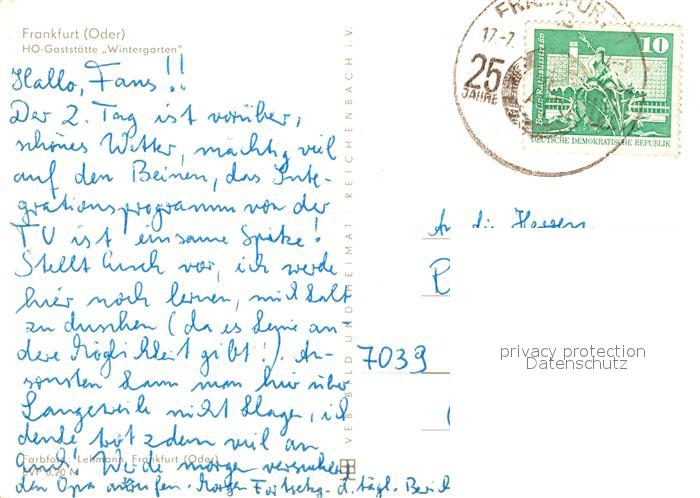 Frankfurt (Oder)
HO-Gaststätte „Wintergarten"
Hallo, Fans!!
Der 2. Tag ist vorüber,
schönes Wetter, mächtig viel
auf den Beinen, das Inte-
grationsprogramm von der
TU ist einsame Spitze!
Stellt Euch vor, ich werde
hier noch lernen, mich kalt
zu duschen (da es keine an
dere Möglichkeit gibt!). An-
sonsten kann man hier über
Langeweile nicht klagen, ich
denke trotzdem viel an
Euch! Werde morgen versuchen
den Opa anrufen. Morgen Fortsetzg. d. tägl. Beric
Farbfoto: Lehmann, Frankfurt (Oder)
EVP 0,20 M
VEB BILD UND HEIMAT · REICHENBACH i. V.
FRANKFURT
17.-7.
25
JAHRE
Berlin, Rathausstraße
10
DEUTSCHE DEMOKRATISCHE REPUBLIK
An die Herren
7039
privacy protection
Datenschutz